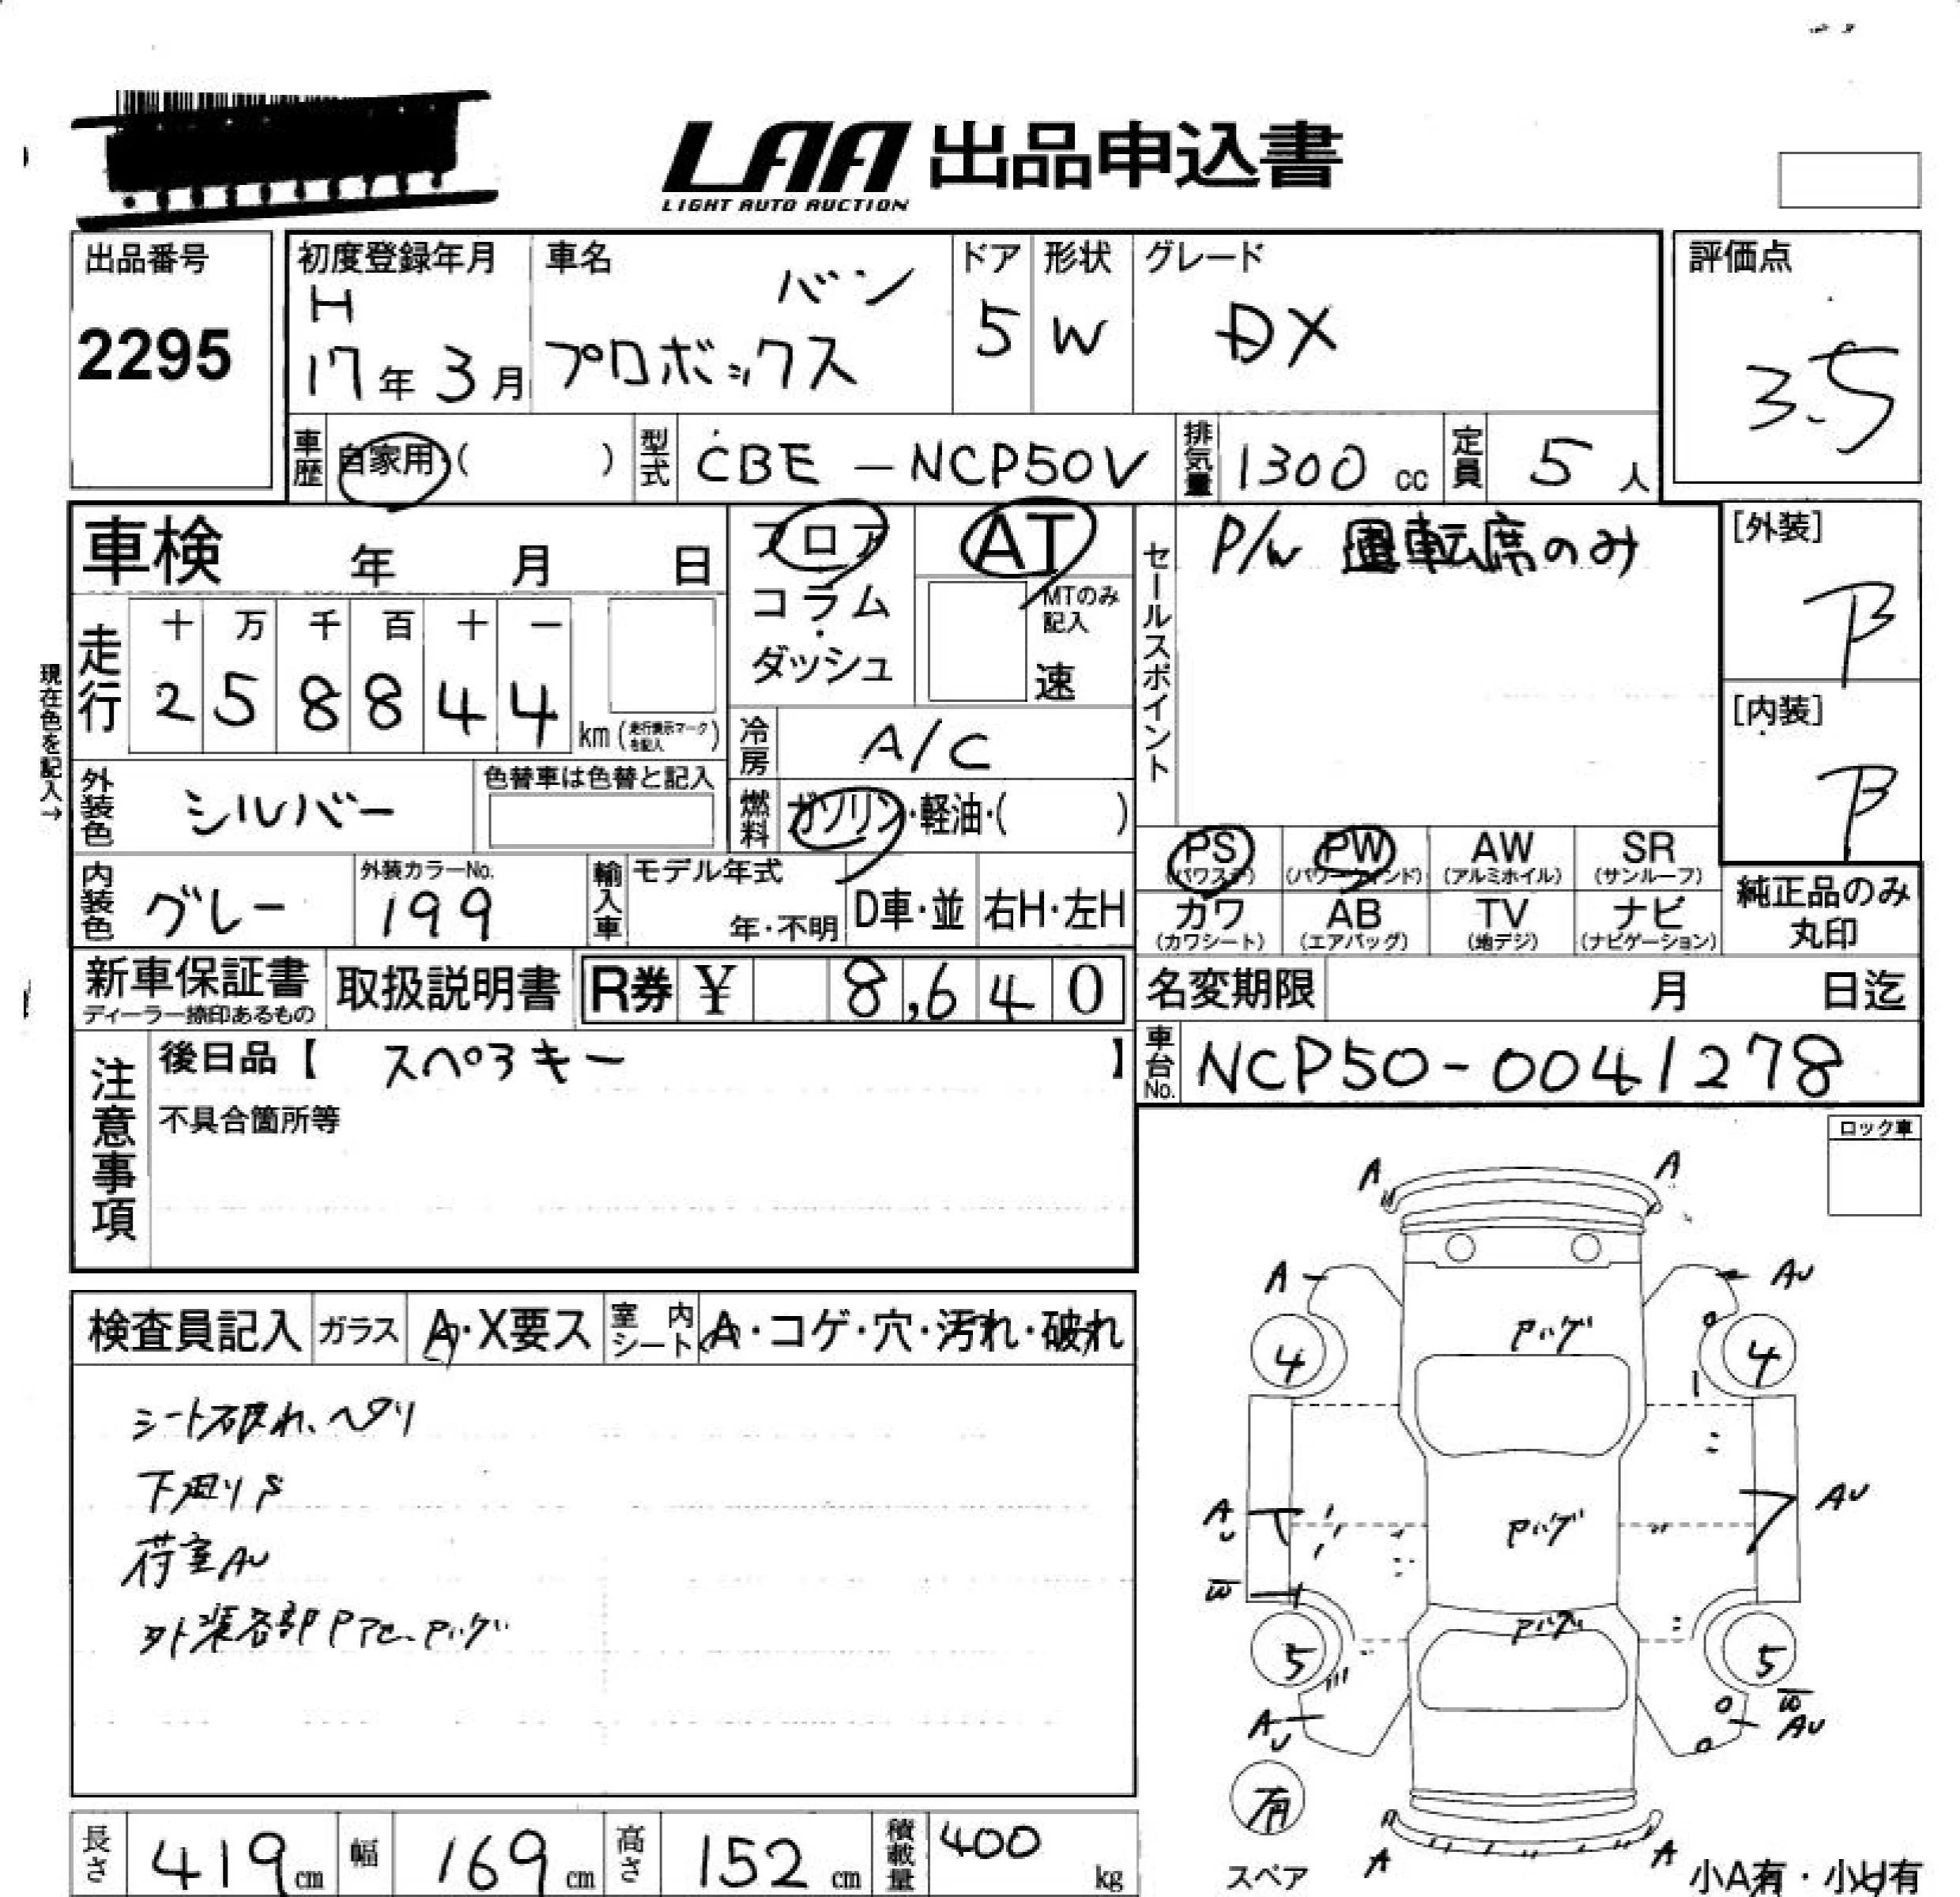 LAA 出品申込書
LIGHT AUTO AUCTION
出品番号
2295
初度登録年月
H
17年3月
車名
バン
プロボックス
ドア
5
形状
W
グレード
DX
評価点
3.5
車歴 自家用 ( )
型式 CBE-NCP50V
排気量 1300 cc
定員 5 人
車検 年 月 日
フロア
コラム
・
ダッシュ
AT
MTのみ
記入
速
セールスポイント
P/W 運転席のみ
[外装]
B
[内装]
B
現在色を記入→
走行
十 万 千 百 十 一
2 5 8 8 4 4
km (走行表示マークを記入)
冷房 A/C
外装色 シルバー
色替車は色替と記入
燃料 ガソリン・軽油・( )
PS (パワステ)
PW (パワーウィンド)
AW (アルミホイル)
SR (サンルーフ)
カワ (カワシート)
AB (エアバッグ)
TV (地デジ)
ナビ (ナビゲーション)
純正品のみ
丸印
内装色 グレー
外装カラーNo.
199
輸入車
モデル年式
年・不明
D車・並
右H・左H
新車保証書
ディーラー捺印あるもの
取扱説明書
R券 ¥ 8,640
名変期限 月 日迄
注意事項
後日品【 スペアキー 】
不具合箇所等
車台No. NCP50-0041278
ロック車
検査員記入
ガラス A・X要ス
室内シート A・コゲ・穴・汚れ・破れ
シート破れ、ヘタリ
下廻りS
荷室AU
外装各部Pアセ、Pハゲ
A A
A AU
4 4
Pハゲ
AU AU
Pハゲ
W
Pハゲ
5 5
W
AU AU
有
スペア
A A
小A有・小U有
長さ 419 cm
幅 169 cm
高さ 152 cm
積載量 400 kg